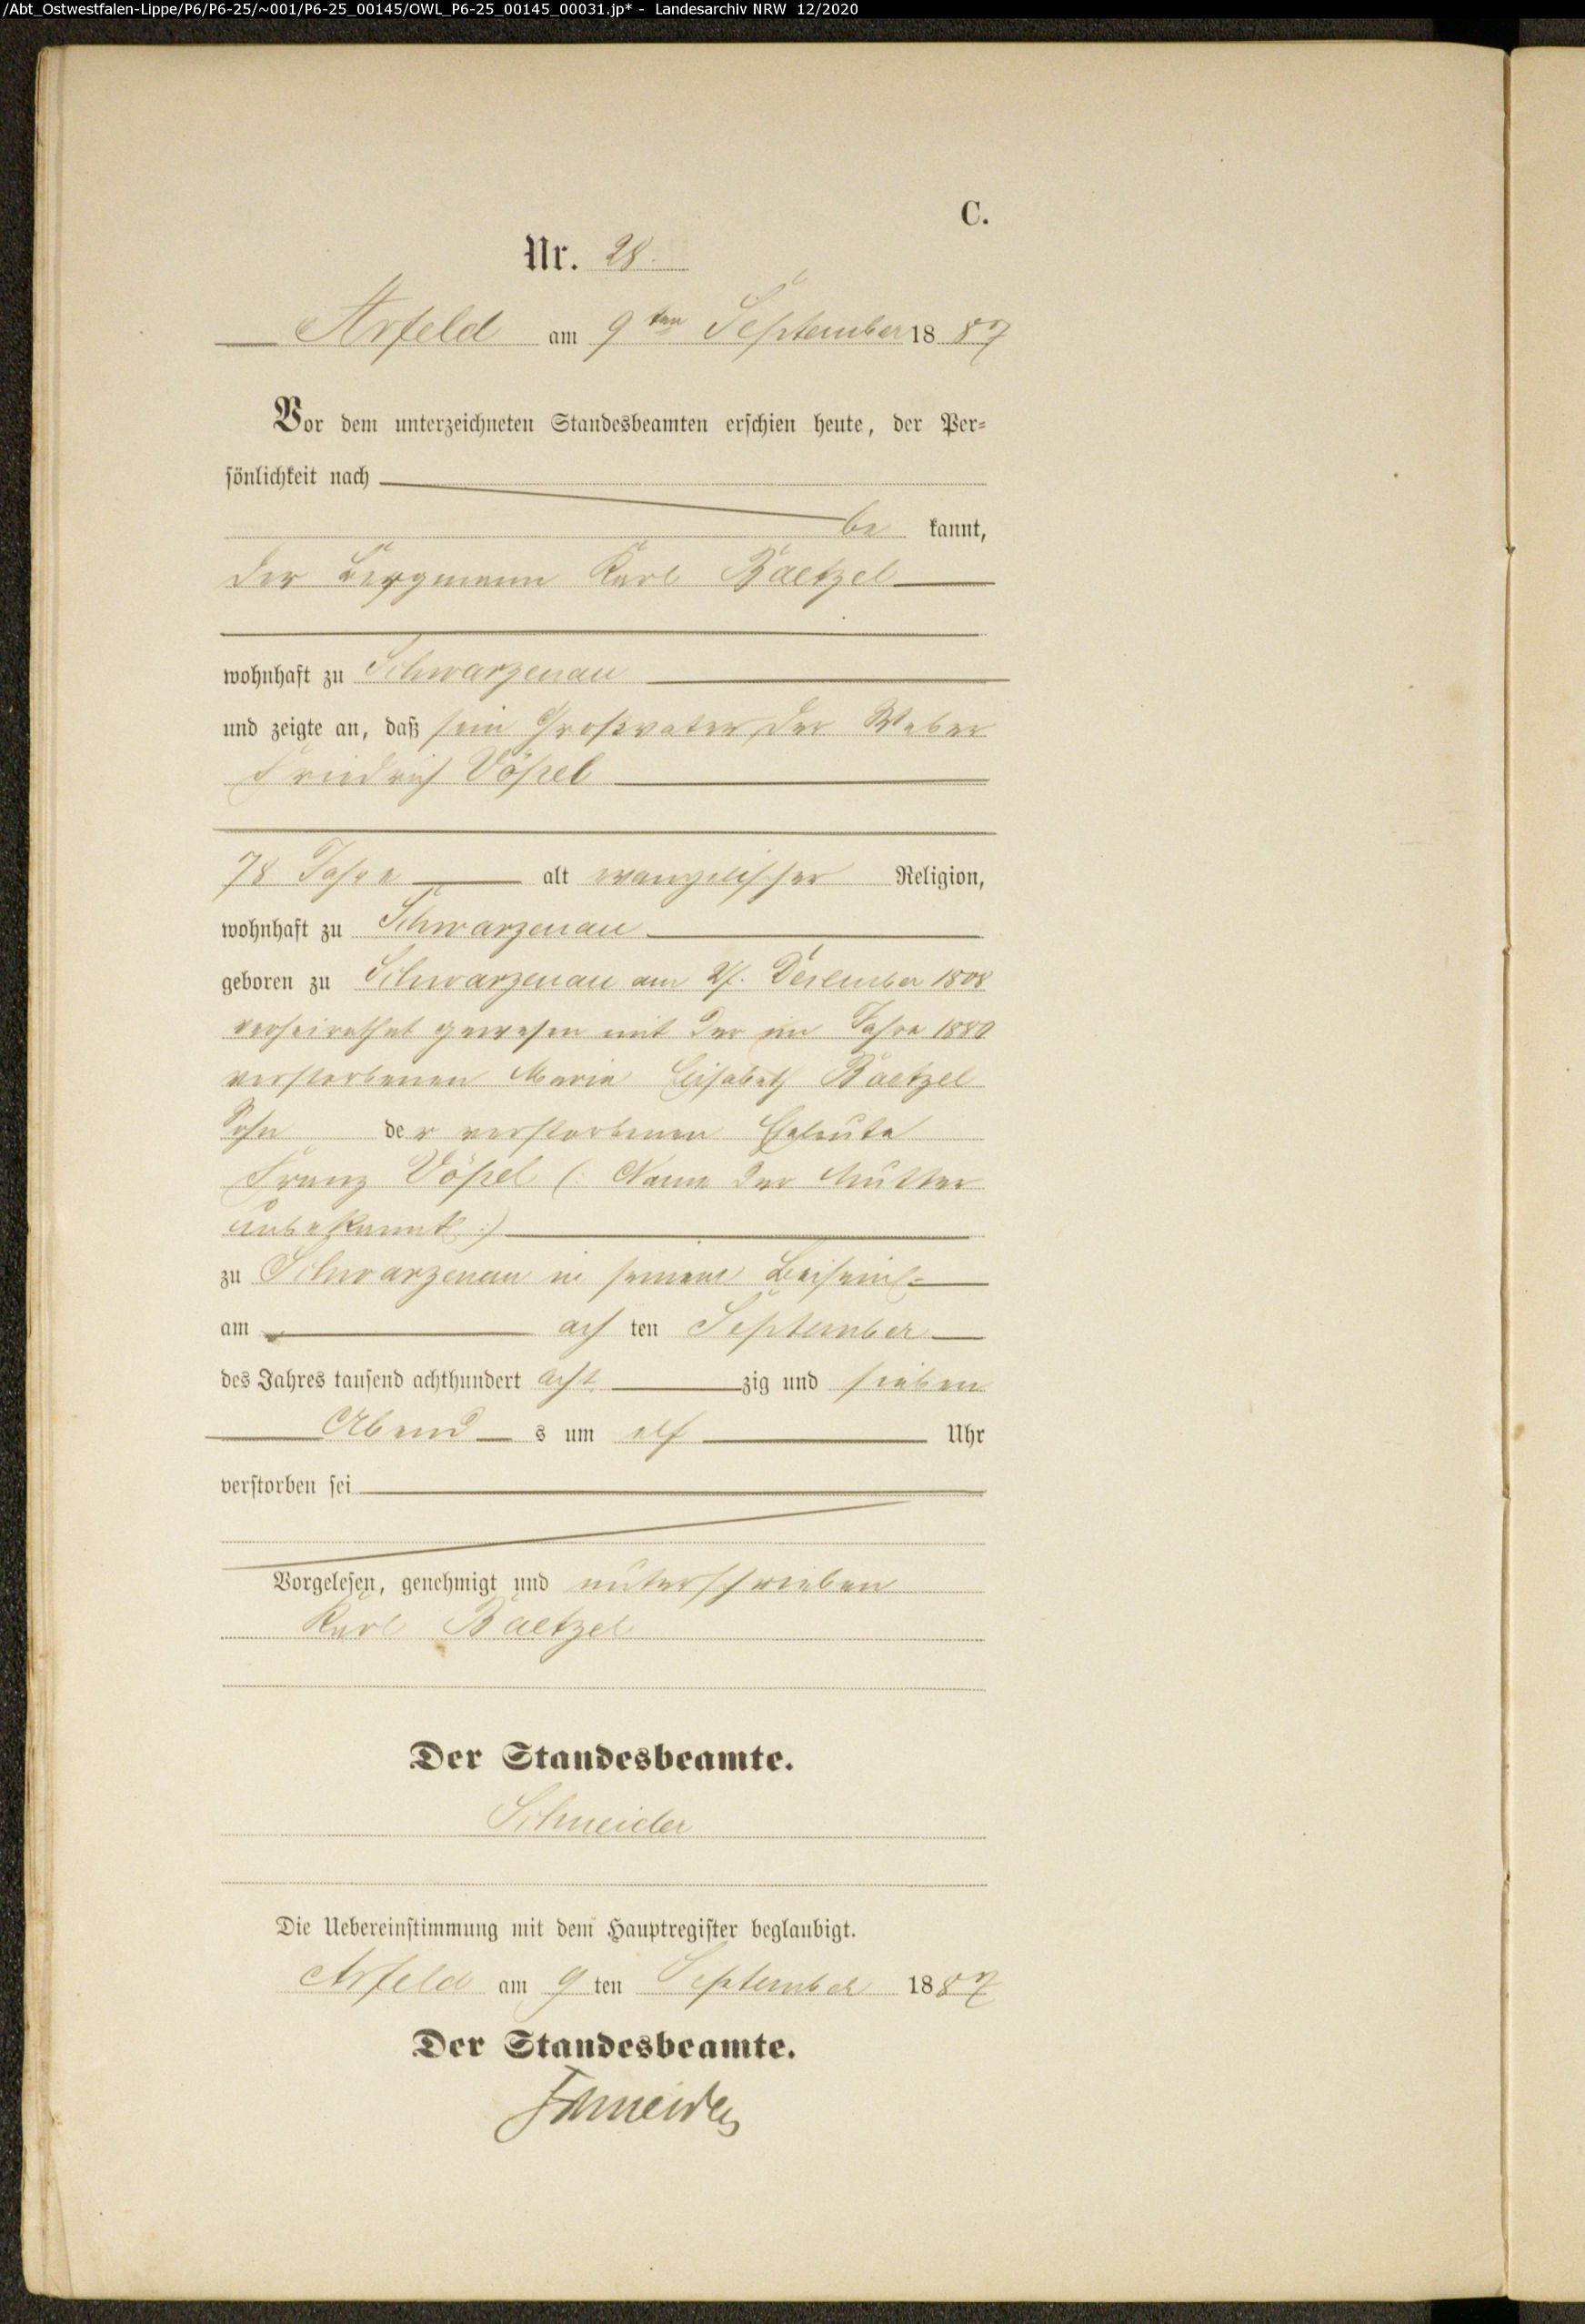 /Abt_Ostwestfalen-Lippe/P6/P6-25/~001/P6-25_00145/OWL_P6-25_00145_00031.jp* - Landesarchiv NRW 12/2020
C.
Nr. 28.
Arfeld am 9ten September 1887
Vor dem unterzeichneten Standesbeamten erschien heute, der Per-
sönlichkeit nach
be kannt,
der Bergmann Karl Baetzel
wohnhaft zu Schwarzenau
und zeigte an, daß sein Großvater, der Weber
Friedrich Vößel
78 Jahre alt evangelischer Religion,
wohnhaft zu Schwarzenau
geboren zu Schwarzenau am 27. December 1808
verheirathet gewesen mit der im Jahre 1880
verstorbenen Maria Elisabeth Baetzel
Sohn der verstorbenen Eheleute
Franz Vößel (: Name der Mutter
unbekannt :)
zu Schwarzenau in seinem Beisein
am ach ten September
des Jahres tausend achthundert acht zig und sieben
Abend s um elf Uhr
verstorben sei
Vorgelesen, genehmigt und unterschrieben
Karl Baetzel
Der Standesbeamte.
Schneider
Die Uebereinstimmung mit dem Hauptregister beglaubigt.
Arfeld am 9 ten September 1887
Der Standesbeamte.
Schneider